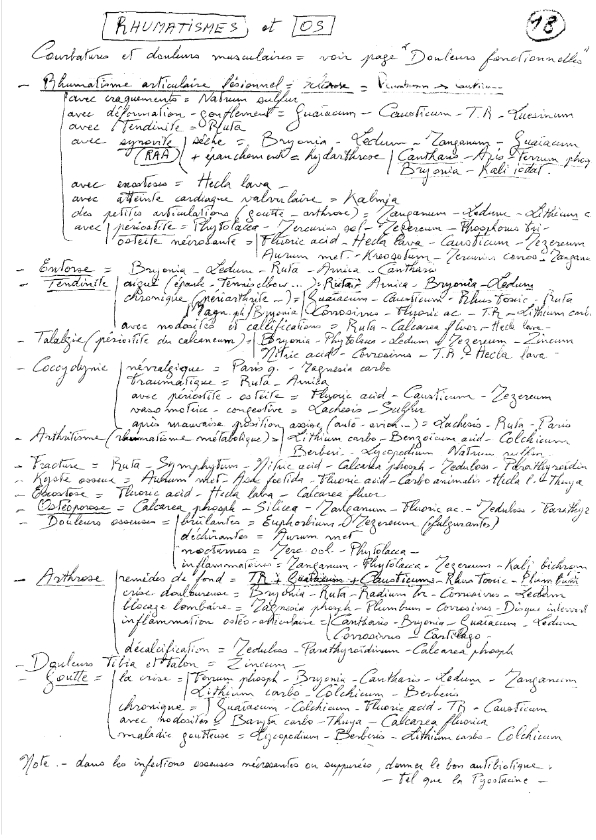 RHUMATISMES et OS 18
Courbatures et douleurs musculaires = voir page "Douleurs fonctionnelles"
- Rhumatisme articulaire lésionnel = sclérose =
avec craquements = Natrum sulfur
avec déformation - gonflement = Guaiacum - Causticum - T.R - Luesinum
avec tendinite = Ruta
avec synovite sèche = Bryonia - Ledum - Manganum - Guaiacum
(RAA) + épanchement = hydarthrose Cantharis - Apis - Ferrum phos
Bryonia - Kali iodat.
avec exostoses = Hecla lava -
avec atteinte cardiaque valvulaire = Kalmia
des petites articulations (goutte - arthrose) = Manganum - Ledum - Lithium c
avec périostite = Phytolacca - Mercurius sol - Mezereum - Phosphorus tri -
ostéite nécrosante = Fluoric acid - Hecla lava - Causticum - Mezereum
Aurum met - Kreosotum - Mercurius corros - Mangana
- Entorse = Bryonia - Ledum - Ruta - Arnica - Cantharis
- Tendinite aiguë (épaule - Tennis elbow ...) = Ruta - Arnica - Bryonia - Ledum
chronique (périarthrite ...) = Guaiacum - Causticum - Rhus toxic - Ruta
Magn. ph / Bryonia Corrosivus - Fluoric ac - T.R - Lithium carb.
avec nodosités et calcifications = Ruta - Calcarea fluor - Hecla lava -
- Talalgie (périostite du calcaneum) = Bryonia - Phytolacca - Ledum - Mezereum - Zincum
Nitric acid - Corrosivus - T.R - Hecla lava -
- Coccydynie névralgique = Paris q. - Magnesia carbo
traumatique = Ruta - Arnica
avec périostite - ostéite = Fluoric acid - Causticum - Mezereum
vasomotrice - congestive = Lachesis - Sulfur
après mauvaise position assise (auto - avion ...) = Lachesis - Ruta - Paris
- Arthritisme (rhumatisme métabolique) = Lithium carbo - Benzoicum acid - Colchicum
Berberis - Lycopodium Natrum sulfur
- Fracture = Ruta - Symphytum - Nitric acid - Calcarea phosph - Meduloss - Parathyroidin
- Kyste osseux = Aurum met - Asa foetida - Fluoric acid - Carbo animalis - Hecla l - Thuya
- Exostose = Fluoric acid - Hecla lava - Calcarea fluor
- Ostéoporose = Calcarea phosph - Silicea - Manganum - Fluoric ac. - Meduloss - Parathyr
- Douleurs osseuses = brûlantes = Euphorbium - Mezereum (fulgurantes)
déchirantes = Aurum met
nocturnes = Merc. sol - Phytolacca -
inflammatoires = Manganum - Phytolacca - Mezereum - Kali bichrom
- Arthrose remèdes de fond = TR + Guaiacum + Causticum - Rhus toxic -
crise douloureuse = Bryonia - Ruta - Radium br - Corrosivus - Ledum
blocage lombaire = Magnesia phosph - Plumbum - Corrosivus - Disque intervert
inflammation ostéo-articulaire = Cantharis - Bryonia - Guaiacum - Ledum
Corrosivus - Cartilago -
décalcification = Meduloss - Parathyroidinum - Calcarea phosph
- Douleurs Tibia et talon = Zincum -
- Goutte = la crise = Ferrum phosph - Bryonia - Cantharis - Ledum - Manganum
Lithium carbo - Colchicum - Berberis
chronique = Guaiacum - Colchicum - Fluoric acid - TR - Causticum
avec nodosités = Baryta carbo - Thuya - Calcarea fluorica
maladie goutteuse = Lycopodium - Berberis - Lithium carbo - Colchicum
Note :- dans les infections osseuses nécrosantes ou suppurées, donner le bon antibiotique.
- tel que la Pyostacine -